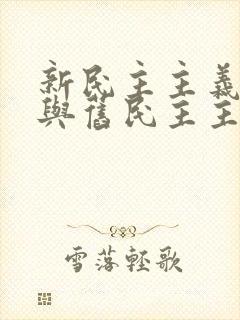 新民主主義
與舊民主主
雪落輕歌